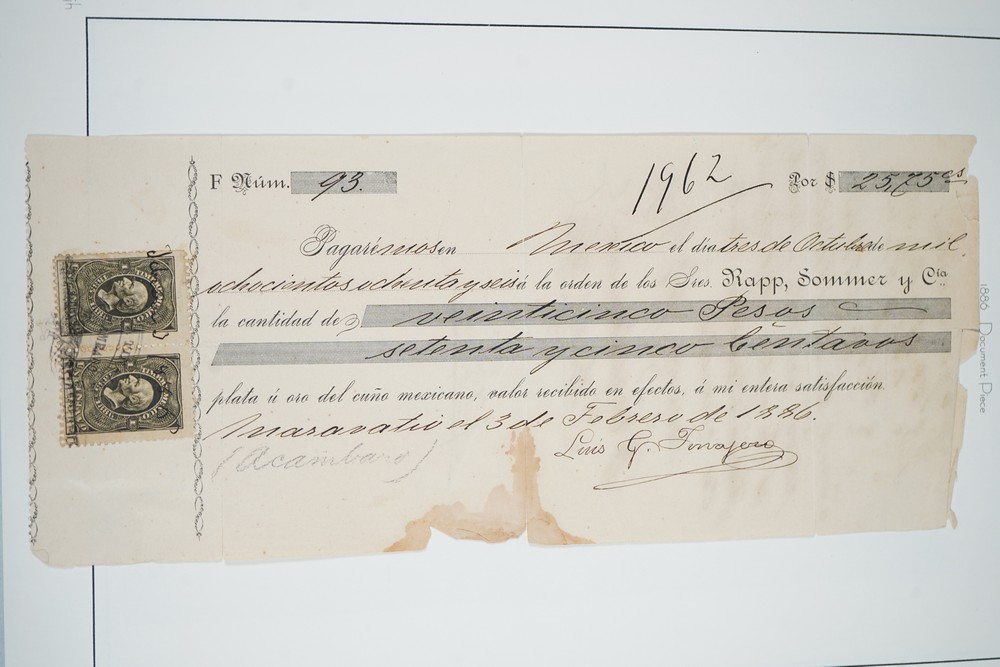 F Núm. 93.
1962
Por $ 25,75 cs
Pagarémos en Mexico el dia tres de Octubre de mil
ochocientos ochenta y seis á la orden de los Sres. Rapp, Sommer y Cía.
la cantidad de veinticinco Pesos
setenta y cinco Centavos
plata ú oro del cuño mexicano, valor recibido en efectos, á mi entera satisfacción.
Maravatio el 3 de Febrero de 1886.
(Acambaro)
Luis G.
1886 Document Piece